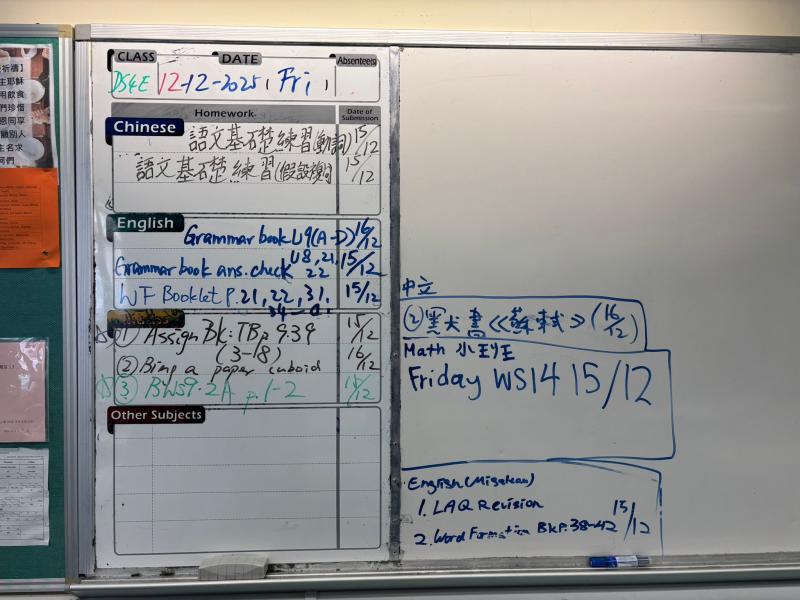 祈禱】
主耶穌
用飲食
們珍惜
恩同享
顧別人
主名求
阿們
CLASS DATE Absentees
DS4E 12-12-2025, Fri,
Homework Date of Submission
Chinese
語文基礎練習(動詞) 15/12
語文基礎練習(假設複句 15/12
English
Grammar book U9(A-D) 16/12
Grammar book ans. check U8, 21, 22 15/12
WF Booklet P.21, 22, 31, 15/12
① Assign Bk: TBp 9.39 15/12
(3-18)
② Bring a paper cuboid 16/12
③ BWS9.2A p.1-2 15/12
Other Subjects
中文
② 默書《蘇軾》(16/12)
Math 小班
Friday WS14 15/12
English (Miss
1. LAQ Revision 15/12
2. Word Formation Bk P.38-42